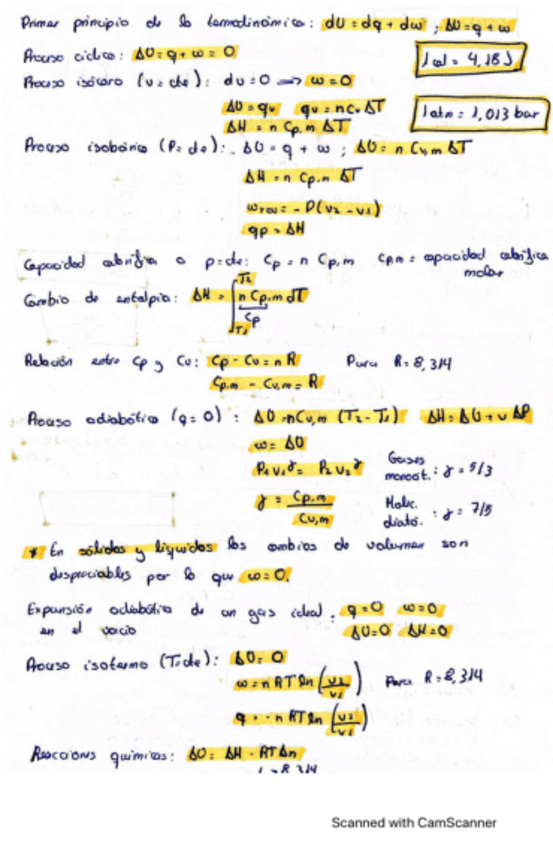 Primer principio de la termodinámica: dU = dq + dw ; ΔU = q + w
Proceso cíclico: ΔU = q + w = 0
1 cal = 4,18 J
Proceso isócoro (v = cte): dv = 0 ⟹ w = 0
ΔU = qv qv = n Cv ΔT
ΔH = n Cp,m ΔT
1 atm = 1,013 bar
Proceso isobárico (P = cte): ΔU = q + w ; ΔU = n Cv,m ΔT
ΔH = n Cp,m ΔT
wrev = - P(v2 - v1)
qp = ΔH
Capacidad calorífica a p = cte: Cp = n Cp,m Cp,m = capacidad calorífica
molar
Cambio de entalpía: ΔH = ∫T1T2 n Cp,m dT
Cp
Relación entre Cp y Cv: Cp - Cv = n R Para R = 8,314
Cp,m - Cv,m = R
Proceso adiabático (q = 0): ΔU = n Cv,m (T2 - T1) ΔH = ΔU + v ΔP
w = ΔU
P1 v1^γ = P2 v2^γ
Gases
monoat.: γ = 5/3
γ = Cp,m / Cv,m
Moléc.
diató. : γ = 7/5
* En sólidos y líquidos los cambios de volumen son
despreciables por lo que w = 0.
Expansión adiabática de un gas ideal: q = 0 w = 0
en el vacío ΔU = 0 ΔH = 0
Proceso isotermo (T = cte): ΔU = 0
w = n RT ln (v2/v1) Para R = 8,314
q = - n RT ln (v2/v1)
Reacciones químicas: ΔU = ΔH - RTΔn
Scanned with CamScanner